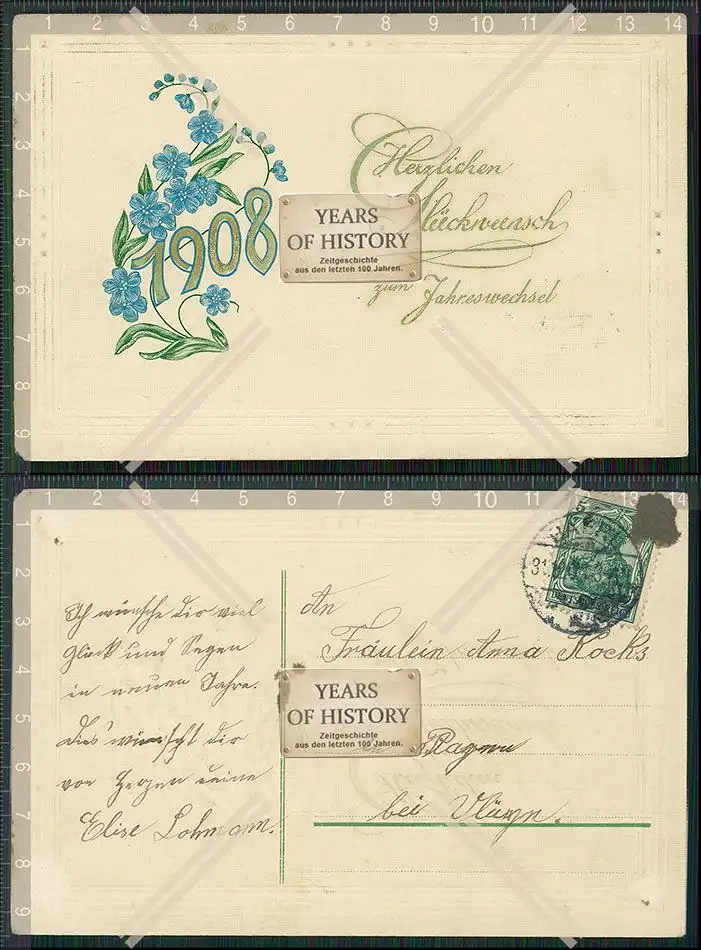 1 2 3 4 5 6 7 8 9 10 11 12 13 14
2
3
4
5
6
7
8
9
1908
Herzlichen
Glückwunsch
zum Jahreswechsel
YEARS
OF HISTORY
Zeitgeschichte
aus den letzten 100 Jahren.
1 2 3 4 5 6 7 8 9 10 11 12 13 14
2
3
4
5
6
7
8
9
Ich wünsche dir viel
Glück und Segen
in neuen Jahre.
Dies wünscht dir
von Herzen deine
Elise Lohmann.
An
Fräulein Anna Kocks
YEARS
OF HISTORY
Zeitgeschichte
aus den letzten 100 Jahren.
in
bei